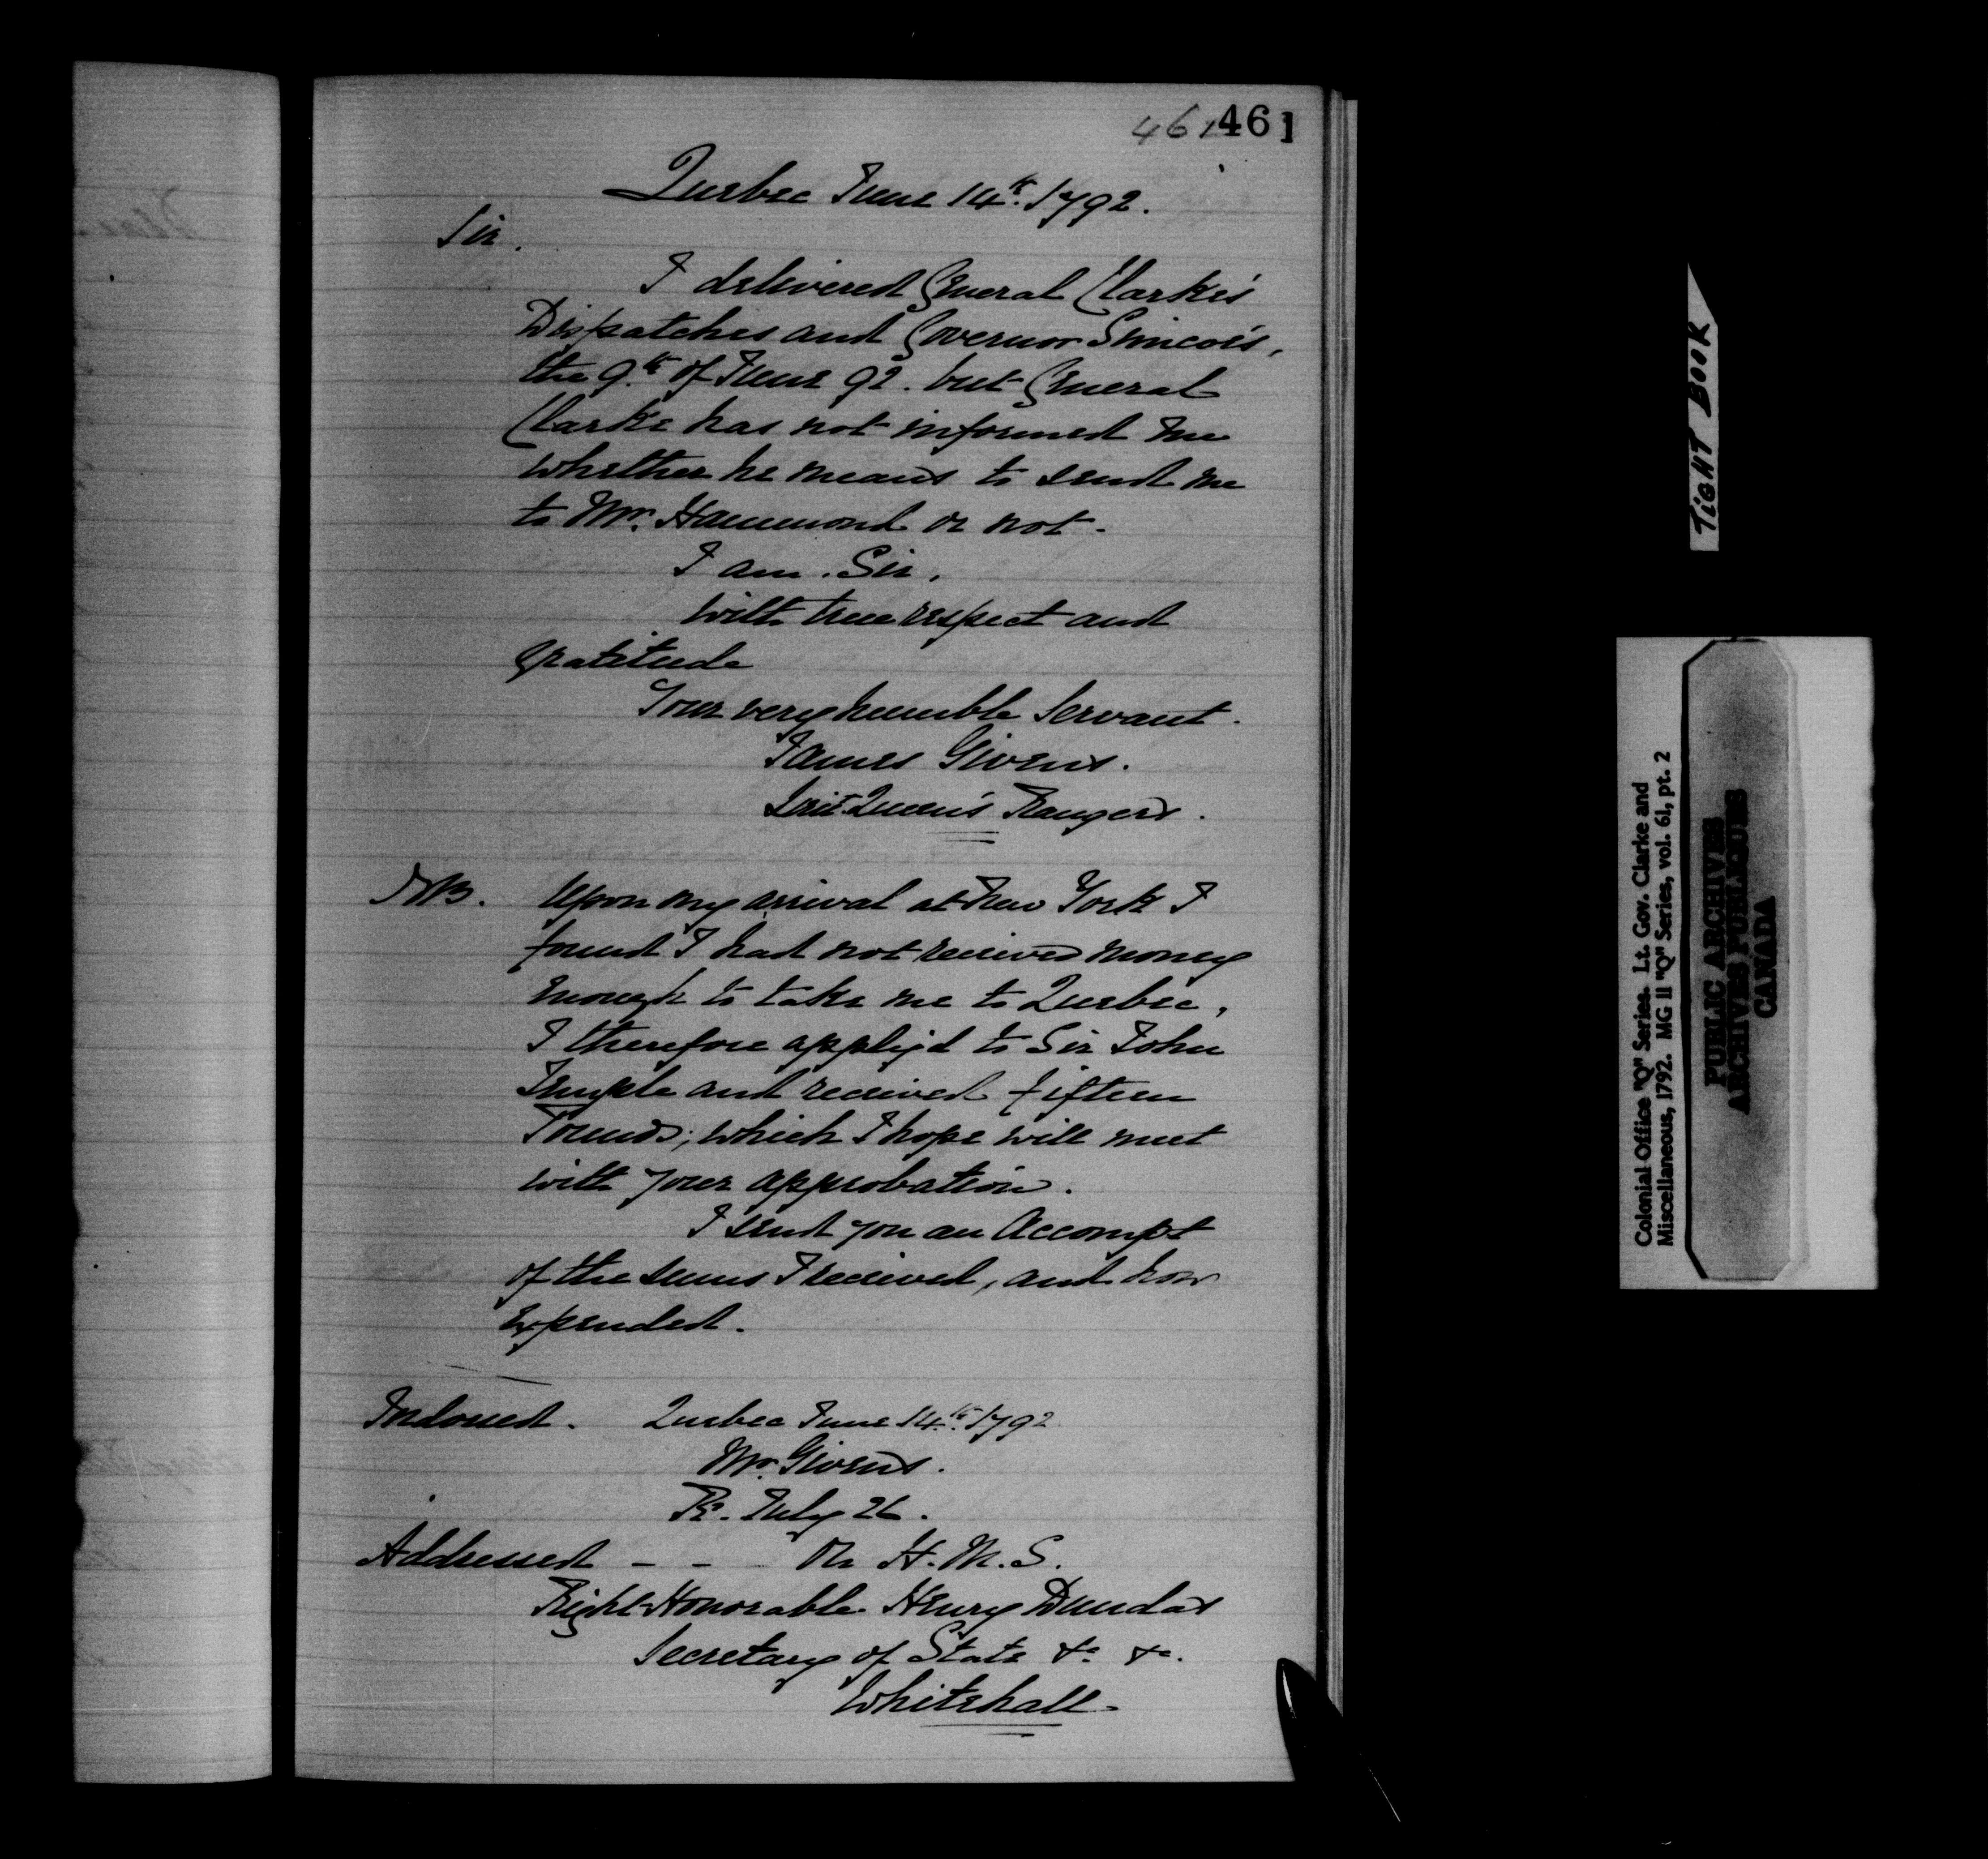 461 461
Quebec June 14th. 1792.
Sir.
I delivered General Clarke's
Dispatches and Governor Simcoe's,
the 9th. of June 92. but General
Clarke has not informed me
whether he means to send me
to Mr. Hammond or not.
I am. Sir,
with true respect and
gratitude
Your very humble Servant.
James Givens.
Lieut. Queen's Rangers.
NB. Upon my arrival at New York I
found I had not received money
enough to take me to Quebec,
I therefore applyed to Sir John
Temple and received fifteen
Pounds; which I hope will meet
with your approbation.
I send you an Accompt
of the sums I received, and how
expended.
Indorsed. Quebec June 14th. 1792
Mr. Givens.
Re. July 26.
Addressed - - On H. M. S.
Right Honorable Henry Dundas
Secretary of State &c. &c.
Whitehall.
TIGHT BOOK
Colonial Office "Q" Series. Lt. Gov. Clarke and
Miscellaneous, 1792. MG 11 "Q" Series, vol. 61, pt. 2
PUBLIC ARCHIVES
ARCHIVES PUBLIQUES
CANADA